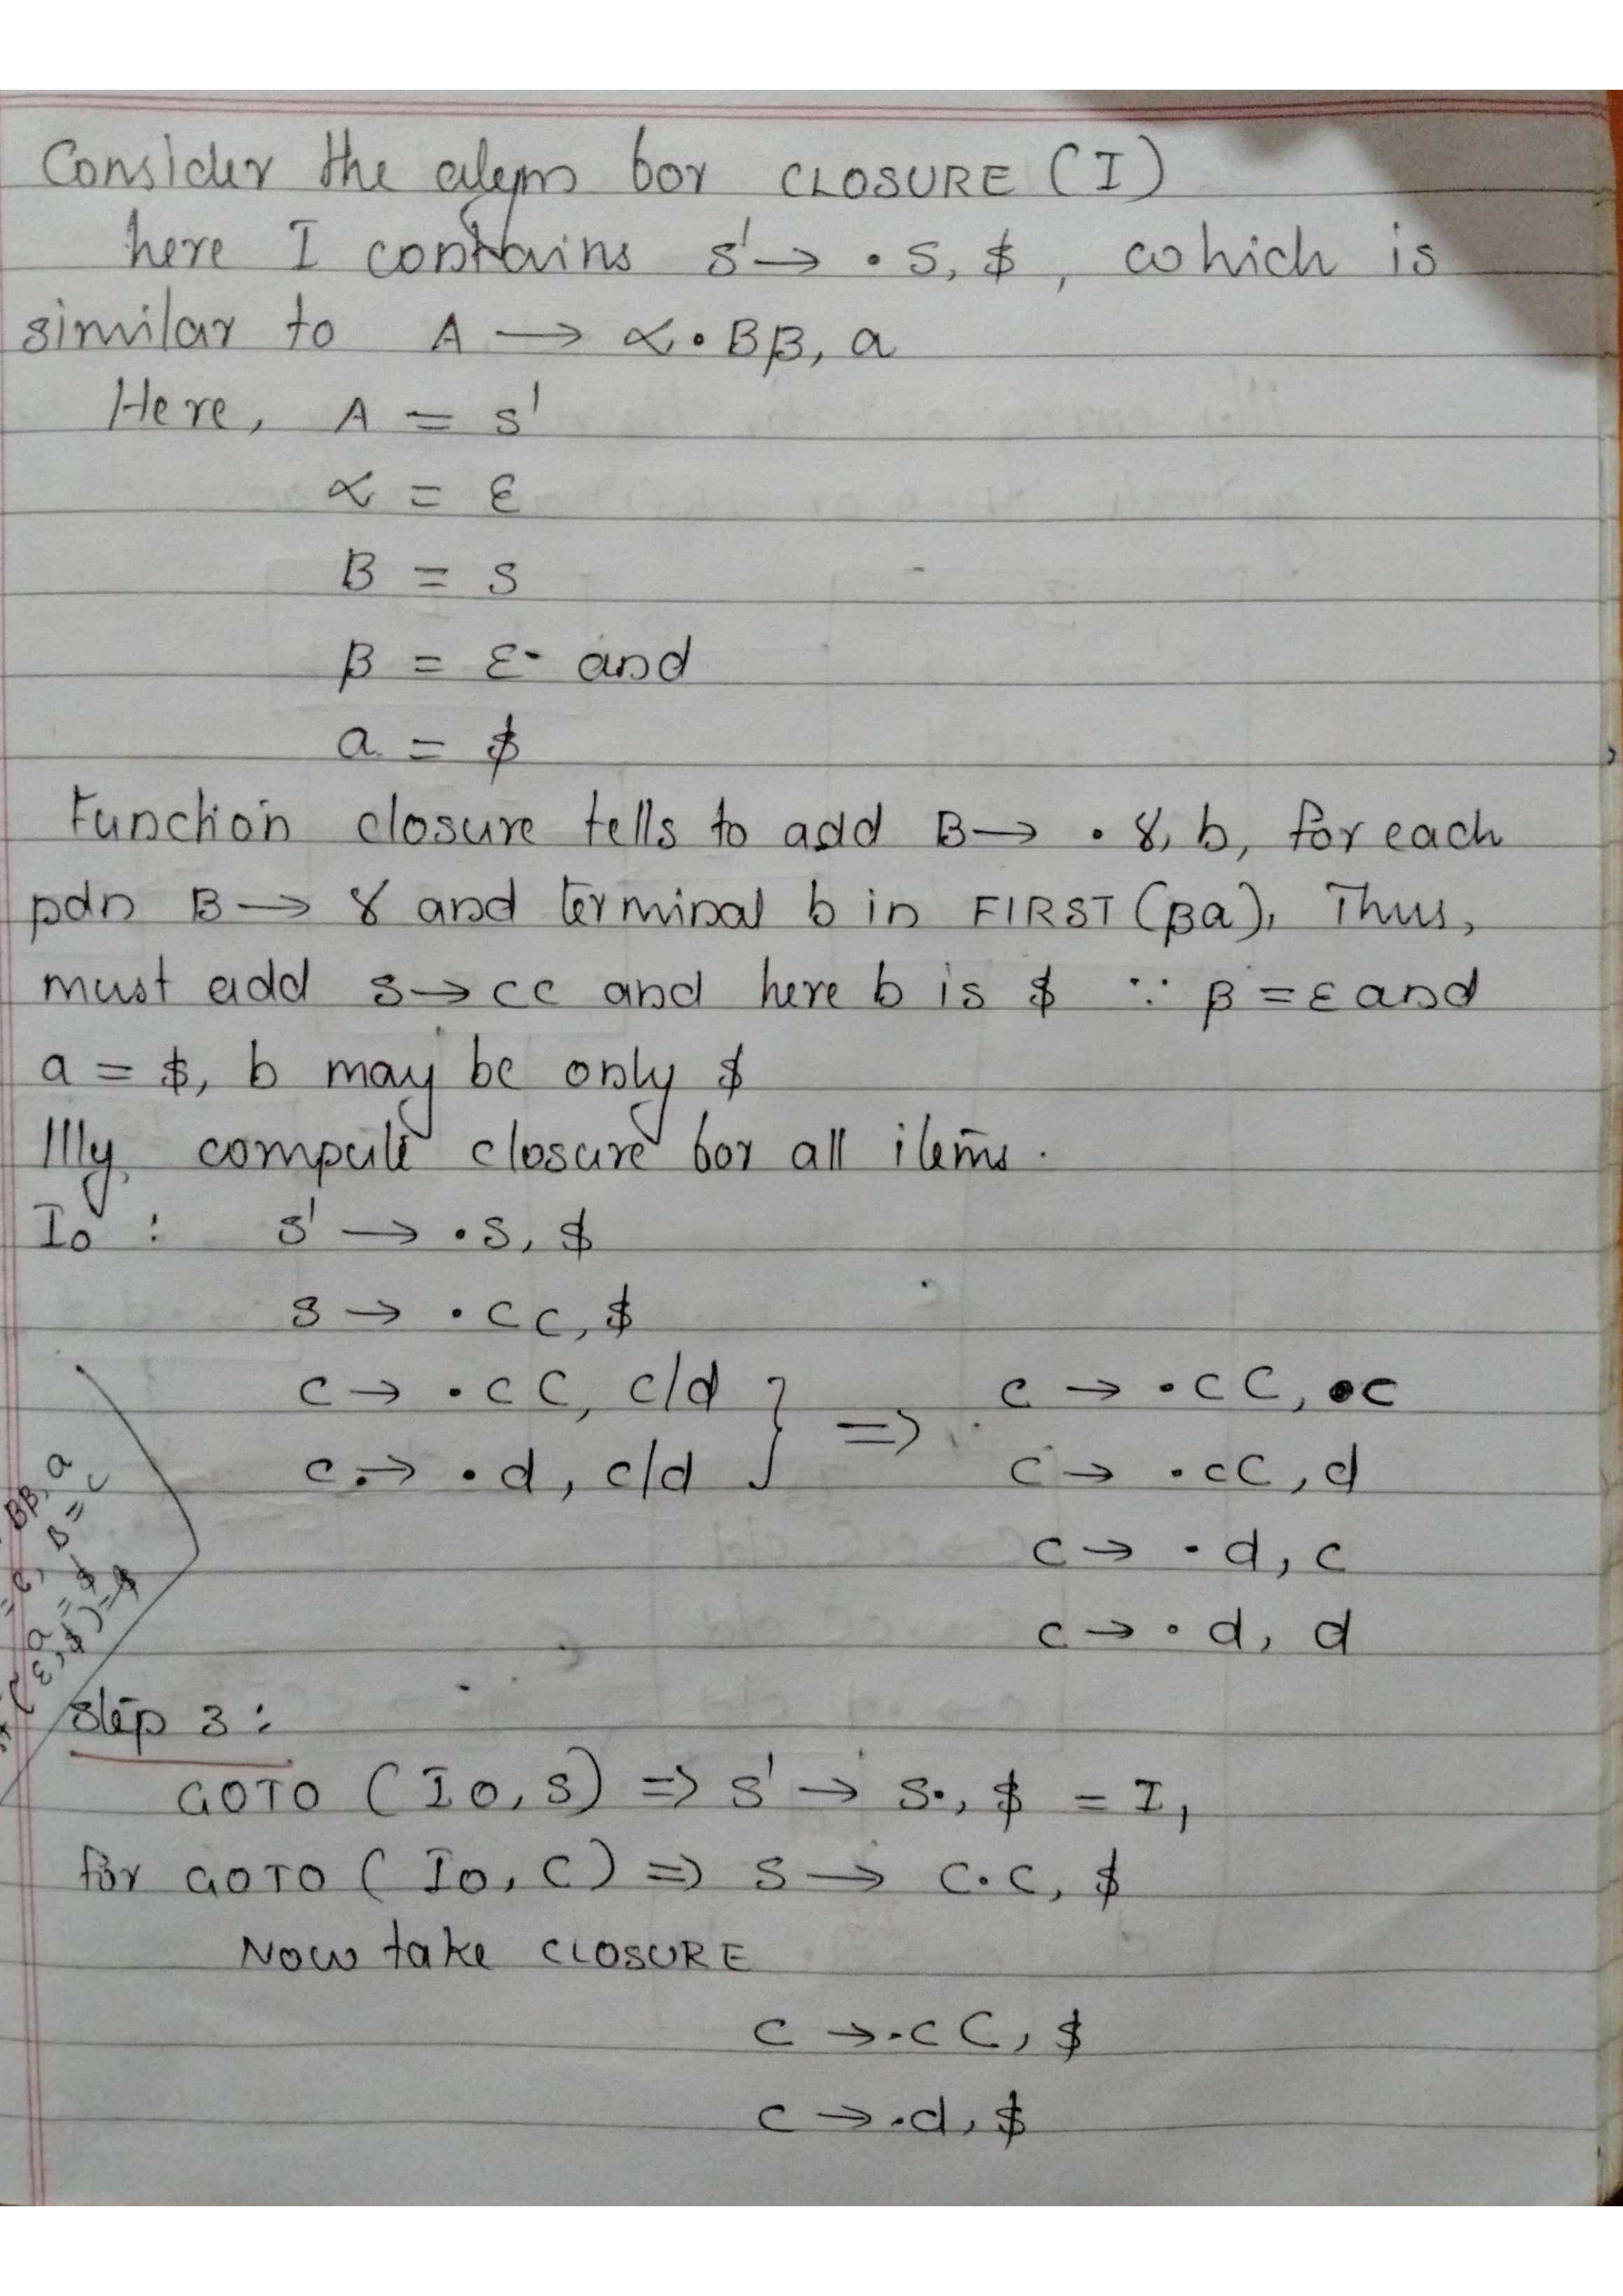 Consider the algm for CLOSURE (I)
here I contains S' → . S, $ , which is
similar to A → α . B β, a
Here, A = S'
α = ε
B = S
β = ε and
a = $
Function closure tells to add B → . γ, b, for each
pdn B → γ and terminal b in FIRST (βa). Thus,
must add S → CC and here b is $ ∵ β = ε and
a = $, b may be only $
Illly, compute closure for all items.
I0 : S' → . S, $
S → . CC, $
C → . cC, c/d } ⇒ C → . cC, c
C → . d, c/d C → . cC, d
C → . d, c
C → . d, d
Bβ, a
B = C
a = $
ε, $) = $
Step 3 :
GOTO (I0, S) ⇒ S' → S., $ = I1
for GOTO (I0, C) ⇒ S → C.C, $
Now take CLOSURE
C → .cC, $
C → .d, $